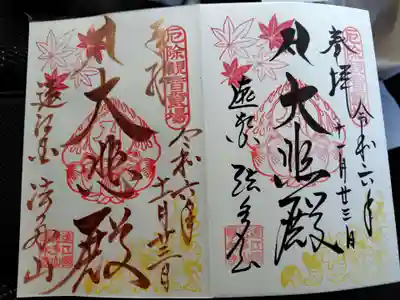 厄除観音霊場
奉拝
令和六年
十一月廿三日
大悲殿
遠江国 法多山
厄除観音霊場
奉拝
令和六年
十一月廿三日
大悲殿
遠江国 法多山